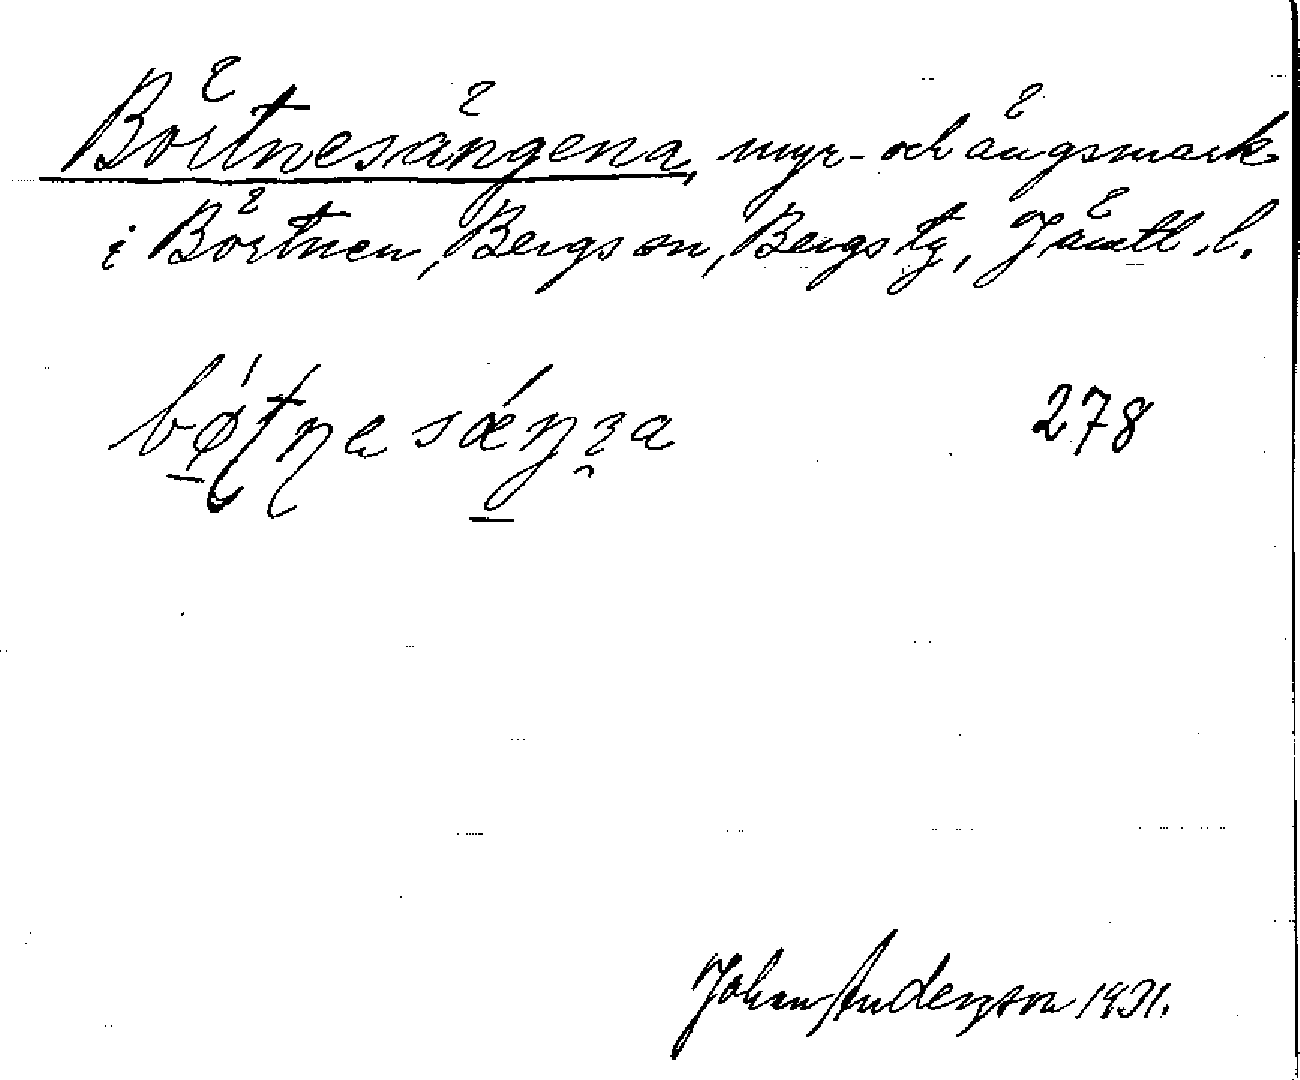 Börtnesängena, myr- och ängsmark
i Börtnen, Bergs sn, Bergs tg, Jämtl. l.
278
Johan Anderzson 1931.